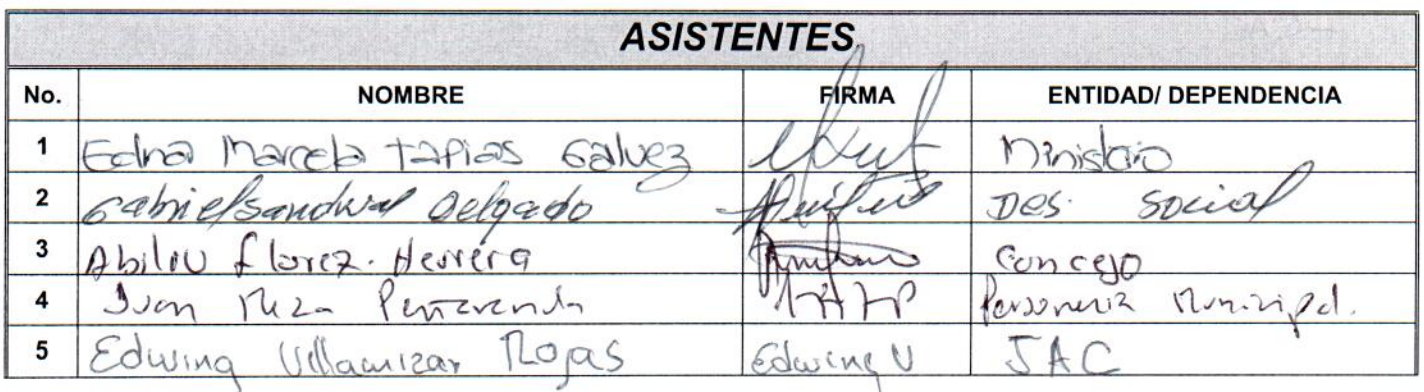 ASISTENTES
No. NOMBRE FIRMA ENTIDAD/ DEPENDENCIA
1 Edna Marcela Tapias Galvez Ministerio
2 Gabriel Sandoval Delgado Des. Social
3 Abilio Florez. Herrera Concejo
4 Juan Meza Peñaranda Personeria Municipal.
5 Edwing Villamizar Rojas Edwing V JAC